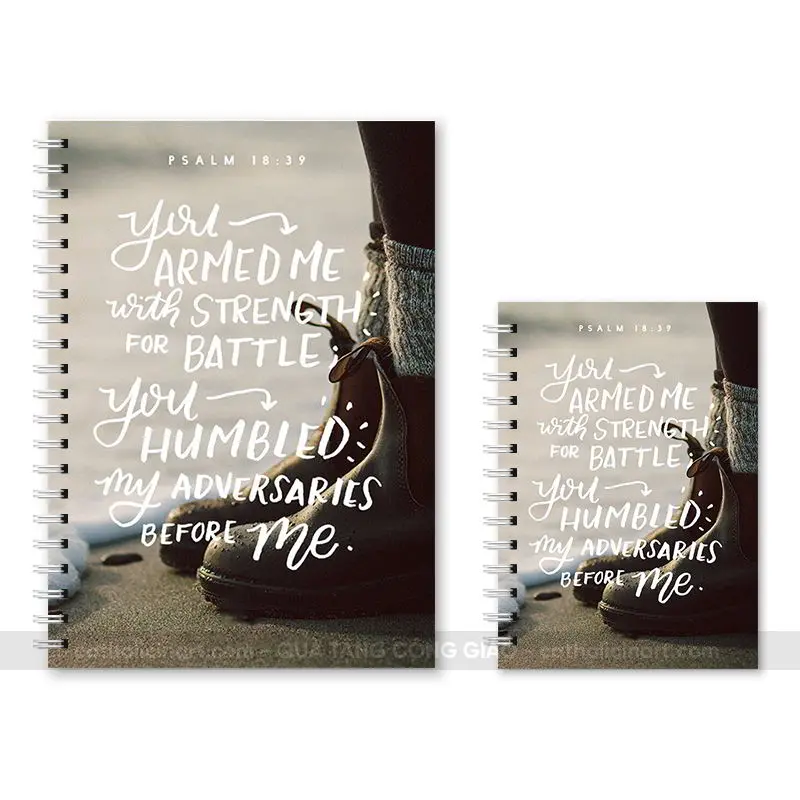 PSALM 18:39
You
ARMED ME
with STRENGTH
FOR BATTLE;
You
HUMBLED
my ADVERSARIES
BEFORE me.
PSALM 18:39
You
ARMED ME
with STRENGTH
FOR BATTLE;
You
HUMBLED
my ADVERSARIES
BEFORE me.
catholicinart.com - QUA TANG CONG GIAO - catholicinart.com